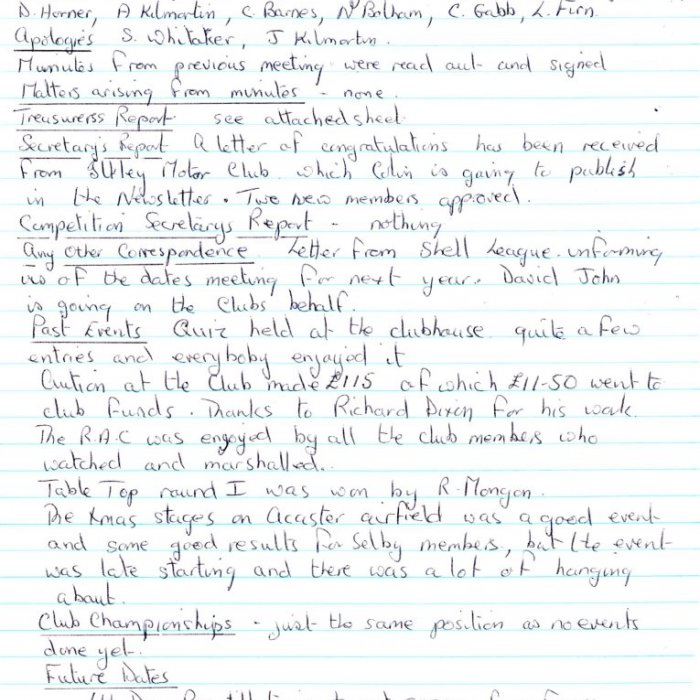 D. Horner, A Kilmartin, C. Barnes, N Bolham, C. Gabb, L. Firn.
Apologies S. Whitaker, J Kilmartin.
Munutes from previous meeting were read out and signed
Matters arising from munutes - none.
Treasurerss Report see attached sheet
Secretary's Report A letter of congratulations has been received
from Ilkley Motor Club which Colin is going to publish
in the Newsletter. Two new members approved.
Competition Secretarys Report - nothing
Any Other Correspondence Letter from Shell League informing
us of the dates meeting for next year. David John
is going on the Clubs behalf.
Past Events Quiz held at the clubhouse quite a few
entries and everyboby enjoyed it
Aution at the Club made £115 of which £11-50 went to
club funds. Thanks to Richard Dixon for his work.
The R.A.C was enjoyed by all the club members who
watched and marshalled.
Table Top round I was won by R. Mongan.
The Xmas stages on Acaster airfield was a good event
and some good results for Selby members, but the event
was late starting and there was a lot of hanging
about.
Club Championships - just the same position as no events
done yet.
Future Dates